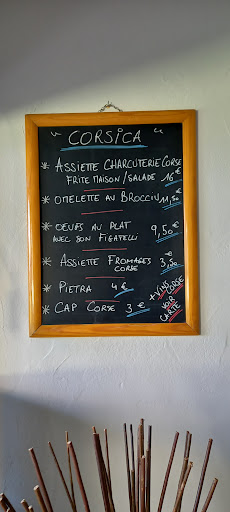 " CORSICA "
* ASSIETTE CHARCUTERIE CORSE
FRITE MAISON / SALADE 16€
* OMELETTE AU BROCCIU 11,50€
* OEUFS AU PLAT
AVEC SON FIGATELLI 9,50€
* ASSIETTE FROMAGES
CORSE 3,50€
* PIETRA 4€
* CAP CORSE 3€
+ VINS
CORSE
VOIR
CARTE